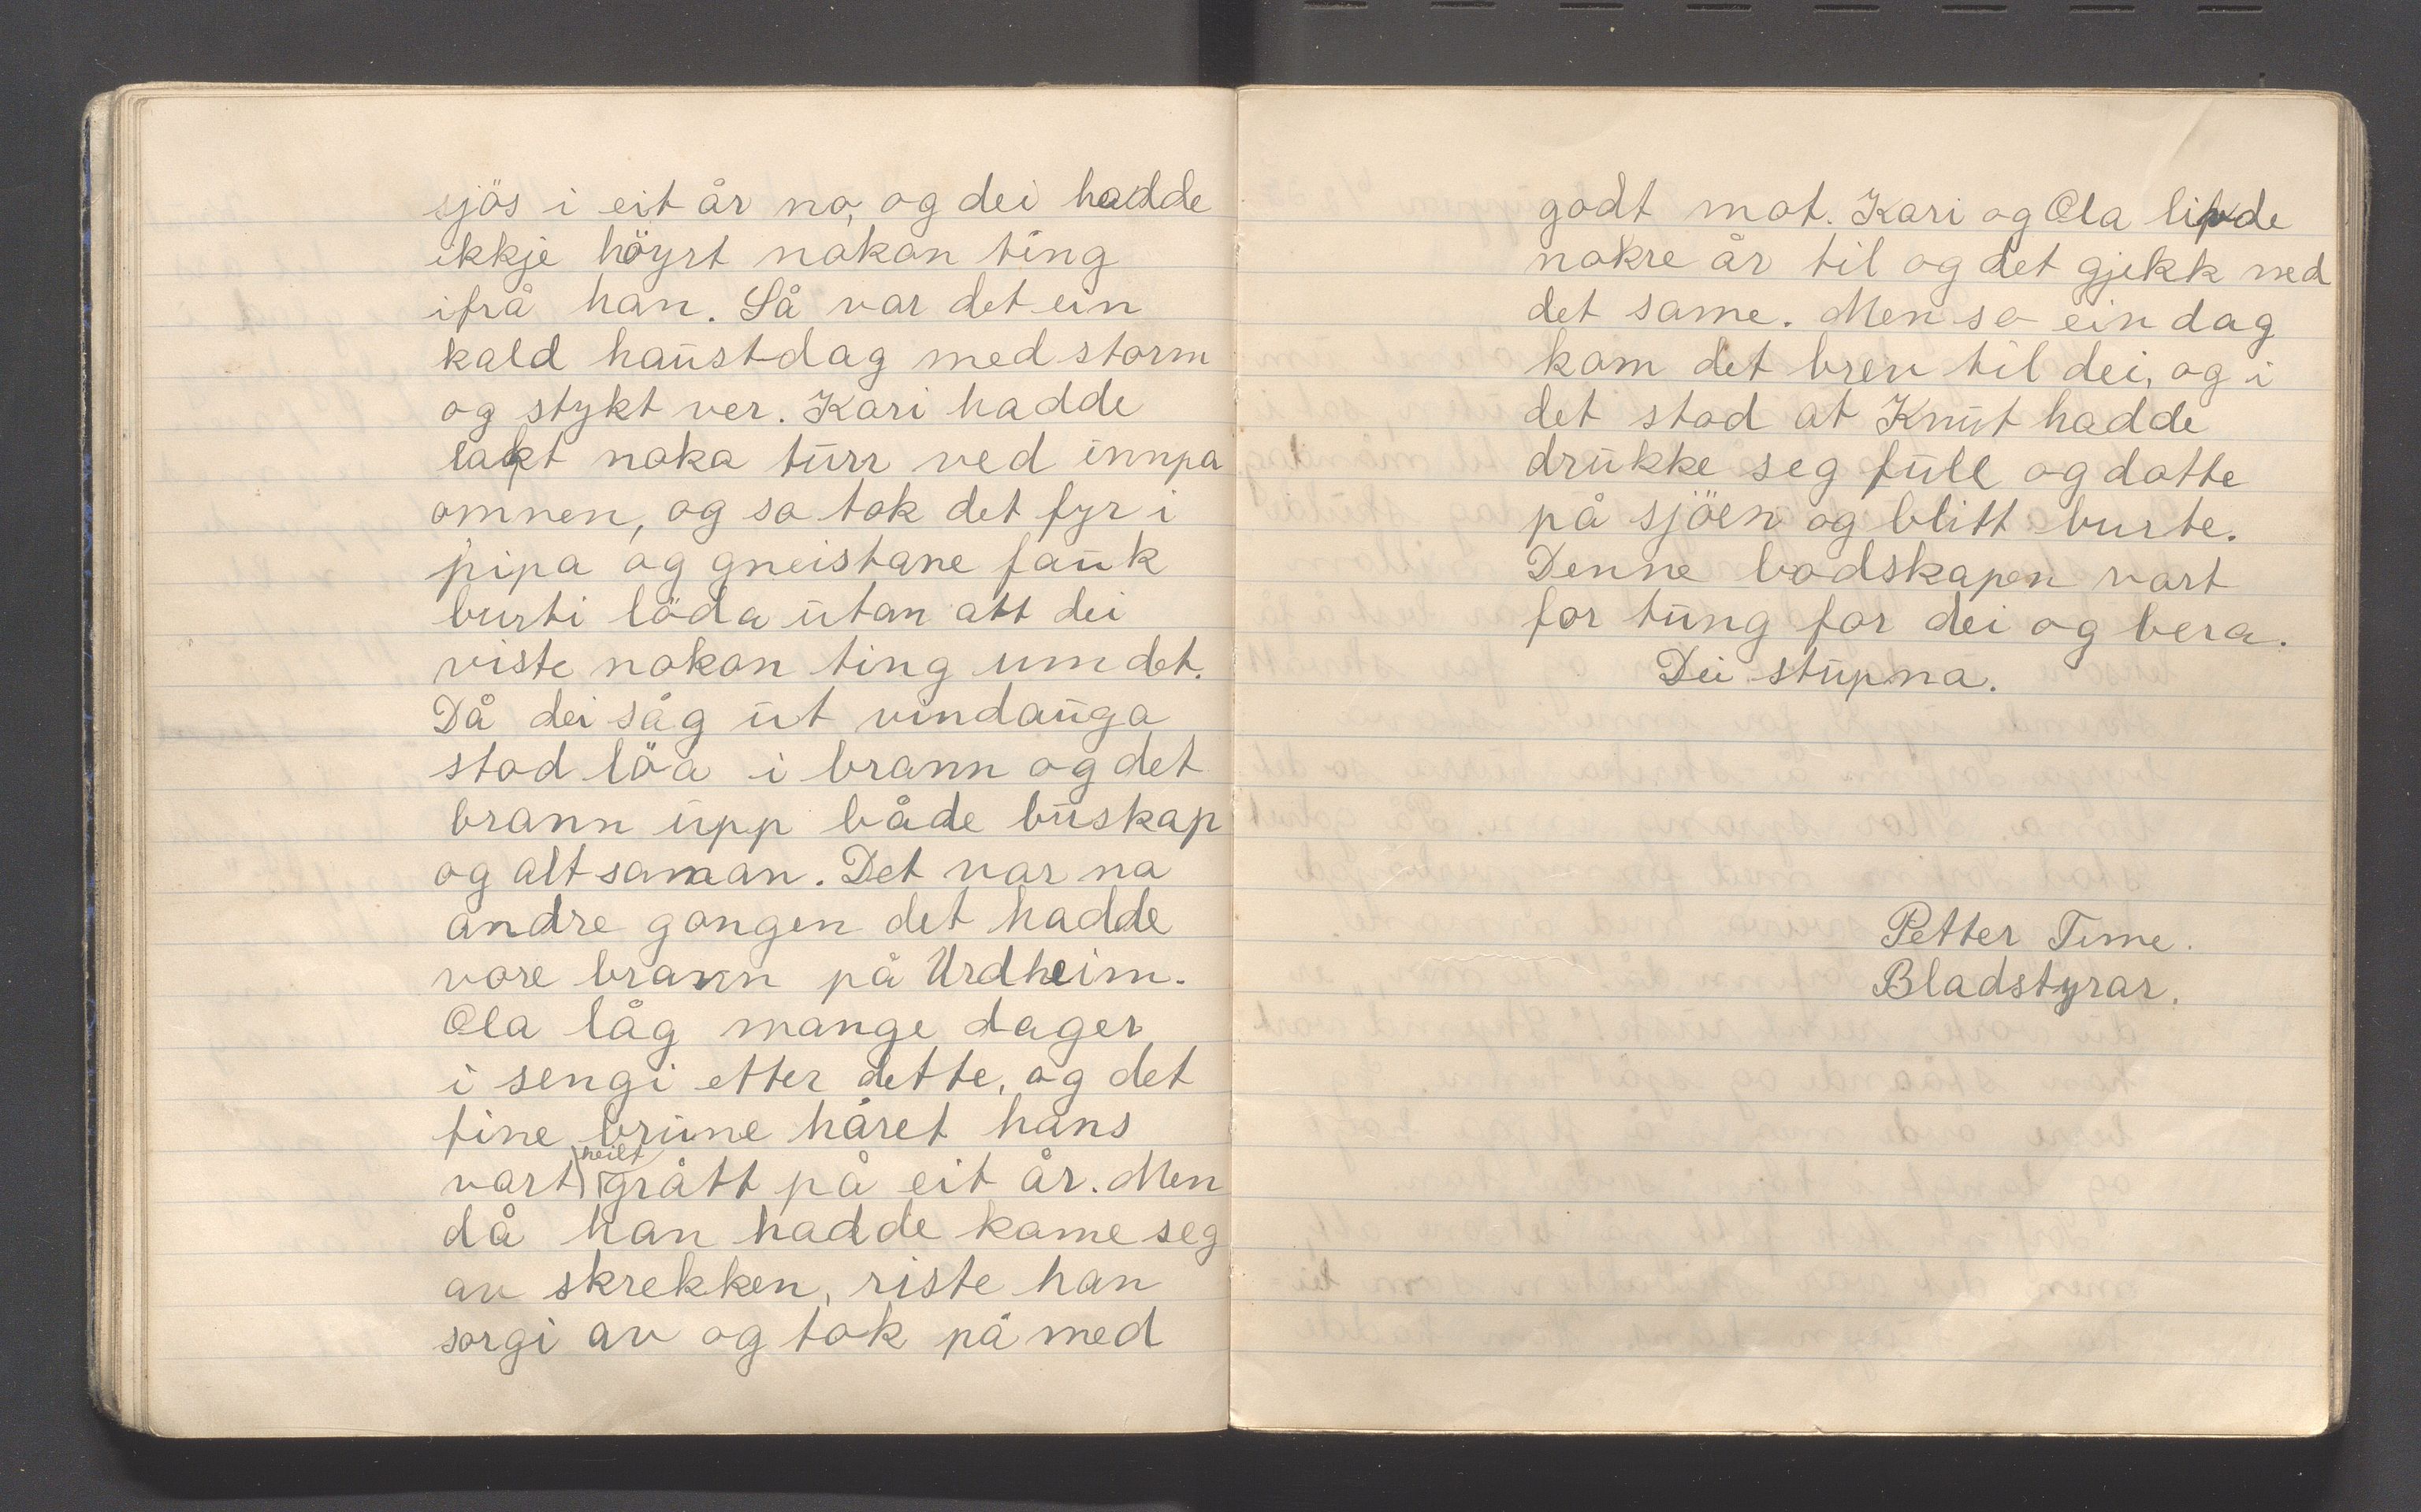 sjös i eit år no, og dei hadde
ikkje höyrt nokon ting
ifrå han. Så var det ein
kald haustdag med storm
og stykt ver. Kari hadde
lakt noka turr ved innpa
omnen, og so tok det fyr i
pipa og gneistane fauk
burti löda utan att dei
viste nokon ting um det.
Då dei såg ut vindauga
stod löa i brann og det
brann upp både buskap
og alt saman. Det var no
andre gongen det hadde
vore brann på Urdheim.
Ola låg mange dager
i sengi etter dette, og det
fine brune håret hans
vart heilt grått på eit år. Men
då han hadde kome seg
av skrekken, riste han
sorgi av og tok på med
godt mot. Kari og Ola livde
nokre år til og det gjekk med
det same. Men so ein dag
kom det brev til dei, og i
det stod at Knut hadde
drukke seg full og dotte
på sjöen og blitt burte.
Denne bodskapen vart
for tung for dei og bera.
Dei stupna.
Petter Time.
Bladstyrar.